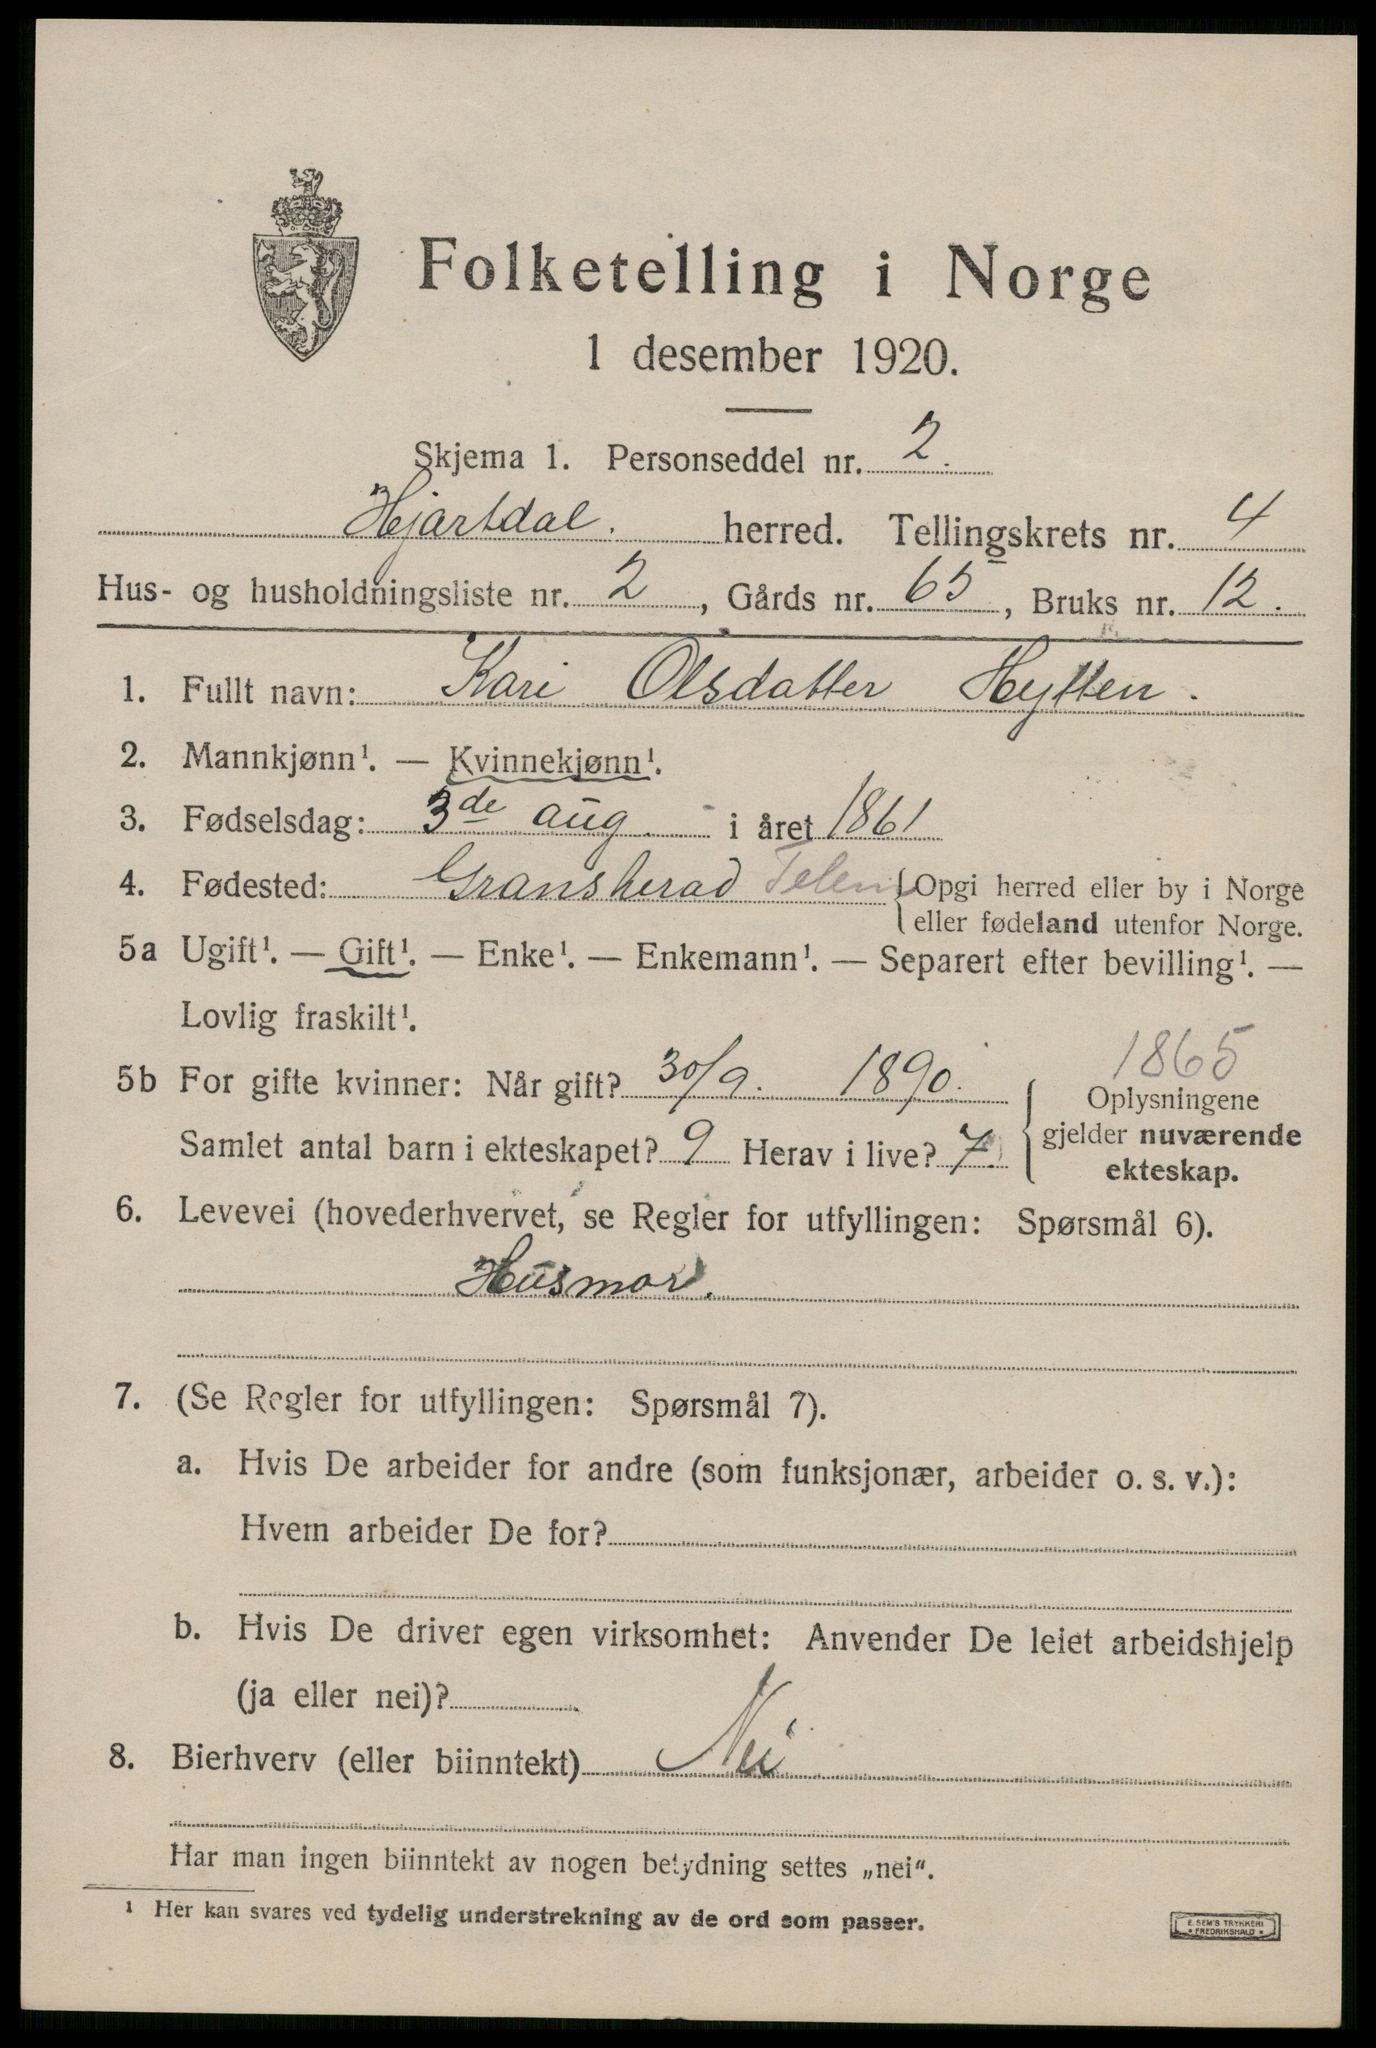 Folketelling i Norge
1 desember 1920.
Skjema 1. Personseddel nr. 2.
Hjartdal. herred. Tellingskrets nr. 4
Hus- og husholdningsliste nr. 2, Gårds nr. 65, Bruks nr. 12.
1. Fullt navn: Kari Olsdatter Hytten.
2. Mannkjønn¹. — Kvinnekjønn¹.
3. Fødselsdag: 3de aug. i året 1861
4. Fødested: Gransherad Telem {Opgi herred eller by i Norge
eller fødeland utenfor Norge.
5a Ugift¹. — Gift¹. — Enke¹. — Enkemann¹. — Separert efter bevilling¹. —
Lovlig fraskilt¹.
1865
5b For gifte kvinner: Når gift? 30/9. 1890.
Samlet antal barn i ekteskapet? 9 Herav i live? 7.
Oplysningene
gjelder nuværende
ekteskap.
6. Levevei (hovederhvervet, se Regler for utfyllingen: Spørsmål 6).
Husmor.
7. (Se Regler for utfyllingen: Spørsmål 7).
a. Hvis De arbeider for andre (som funksjonær, arbeider o. s. v.):
Hvem arbeider De for?
b. Hvis De driver egen virksomhet: Anvender De leiet arbeidshjelp
(ja eller nei)?
8. Bierhverv (eller biinntekt) Nei
Har man ingen biinntekt av nogen betydning settes „nei“.
¹ Her kan svares ved tydelig understrekning av de ord som passer.
E. SEM'S TRYKKERI
* FREDRIKSHALD *